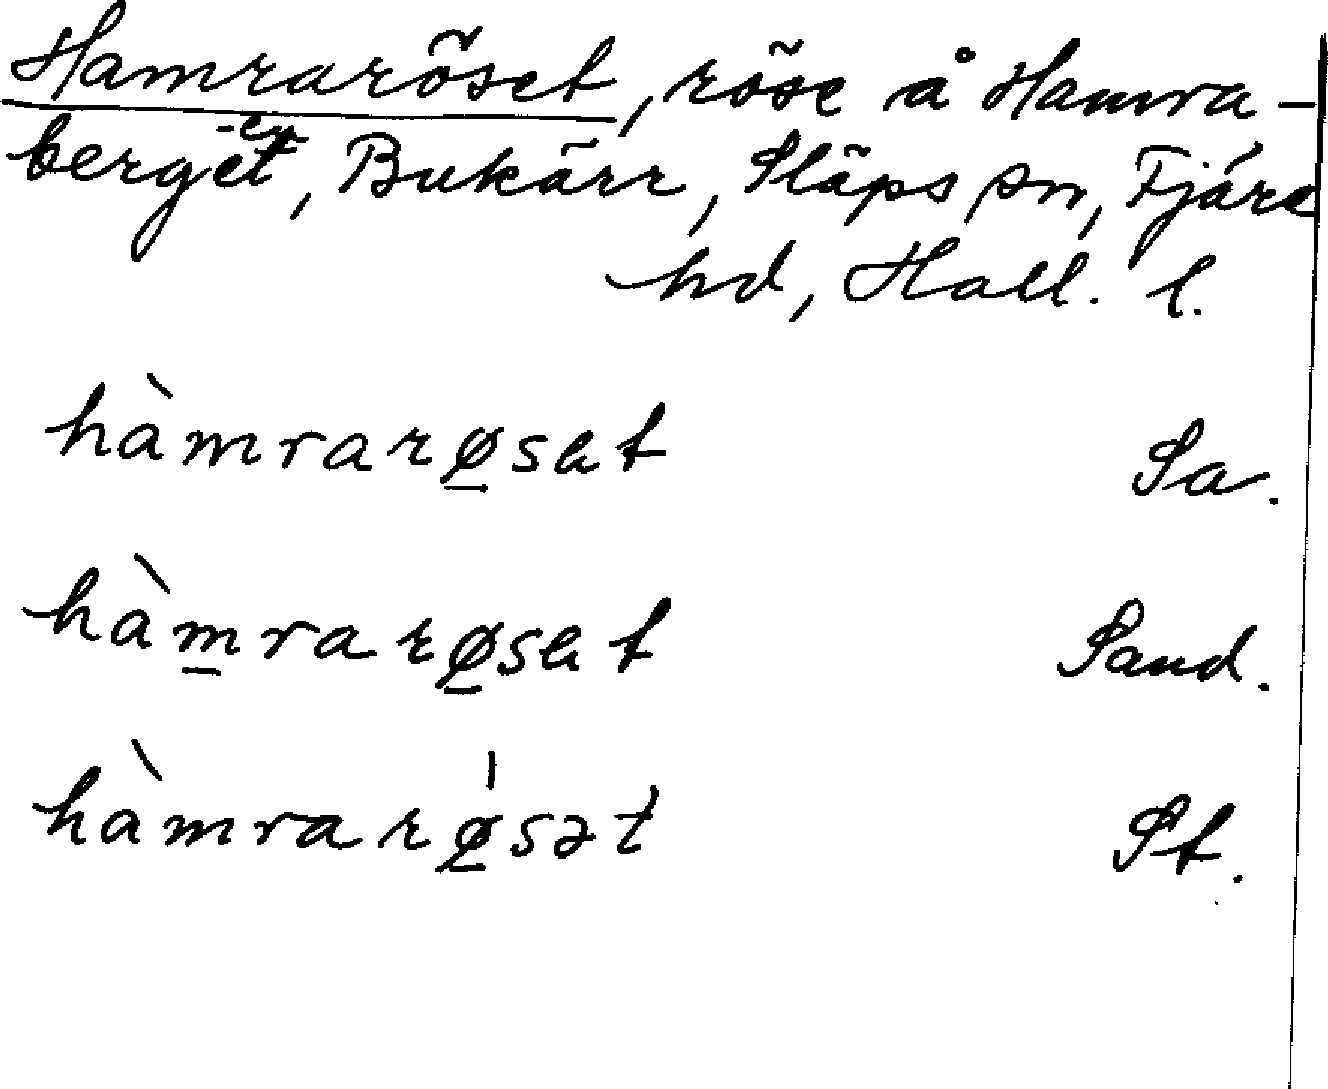 Hamraröset, röse å Hamra-
berget -en, Bukärr, Släps sn, Fjäre
hd, Hall. l.
hàmrarø̲sət Sa.
hàm̲rarø̲sət Sand.
hàmrarǿ̲sət St.